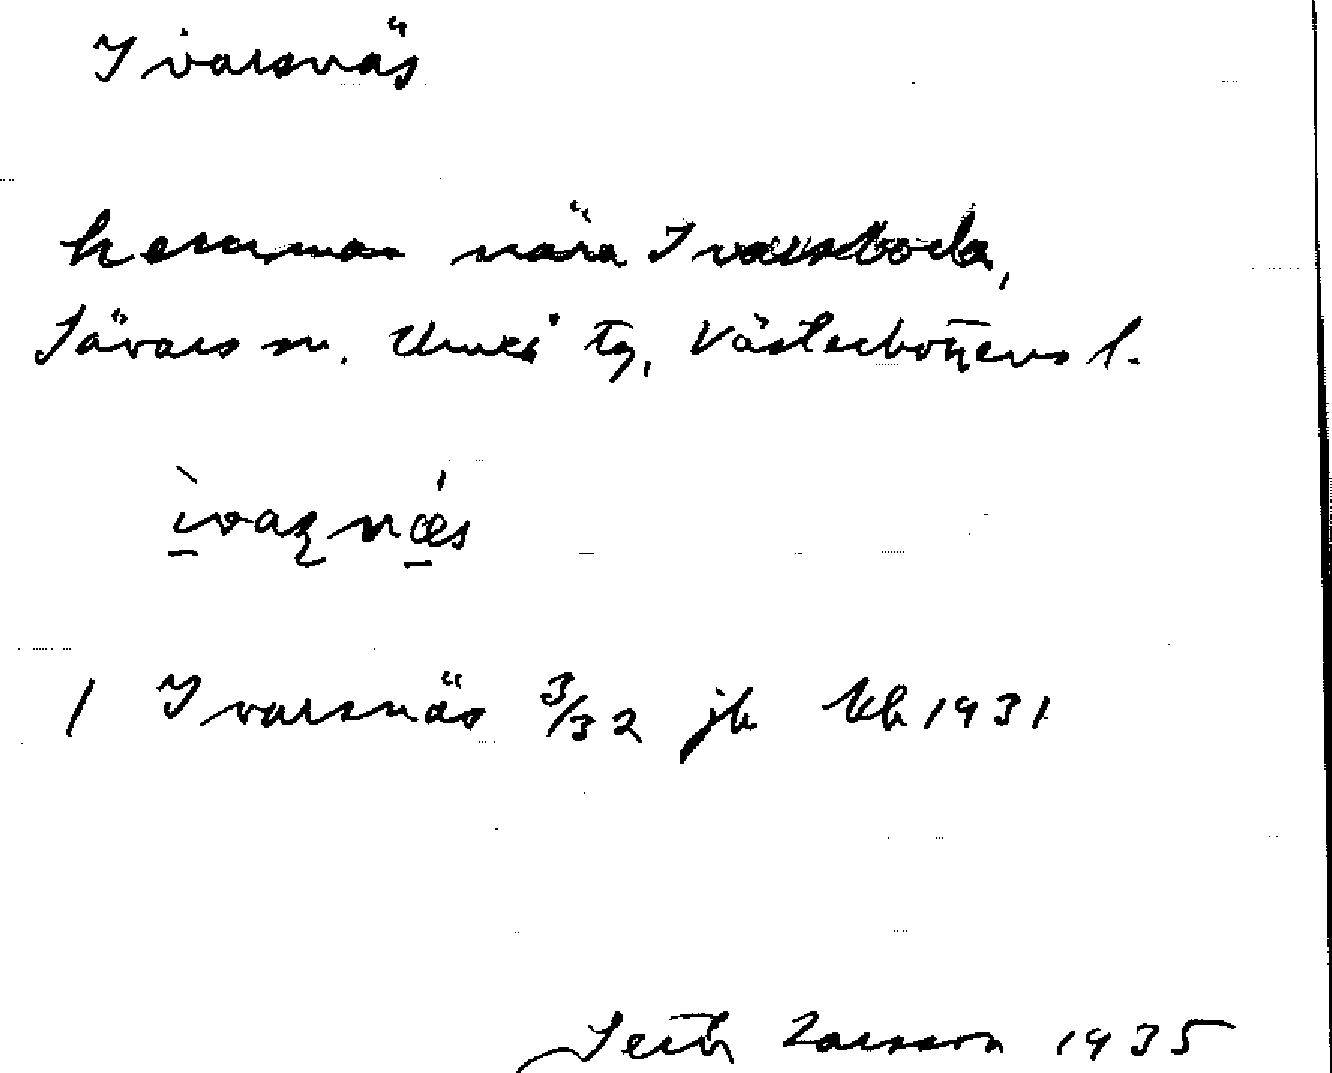 Ivarsnäs
hemman nära Ivarsboda,
Sävars sn. Umeå tg, Västerbottens l.
ìvaʂnǽs
1 Ivarsnäs 3/32 jb Ub 1931
Seth Larsson 1935